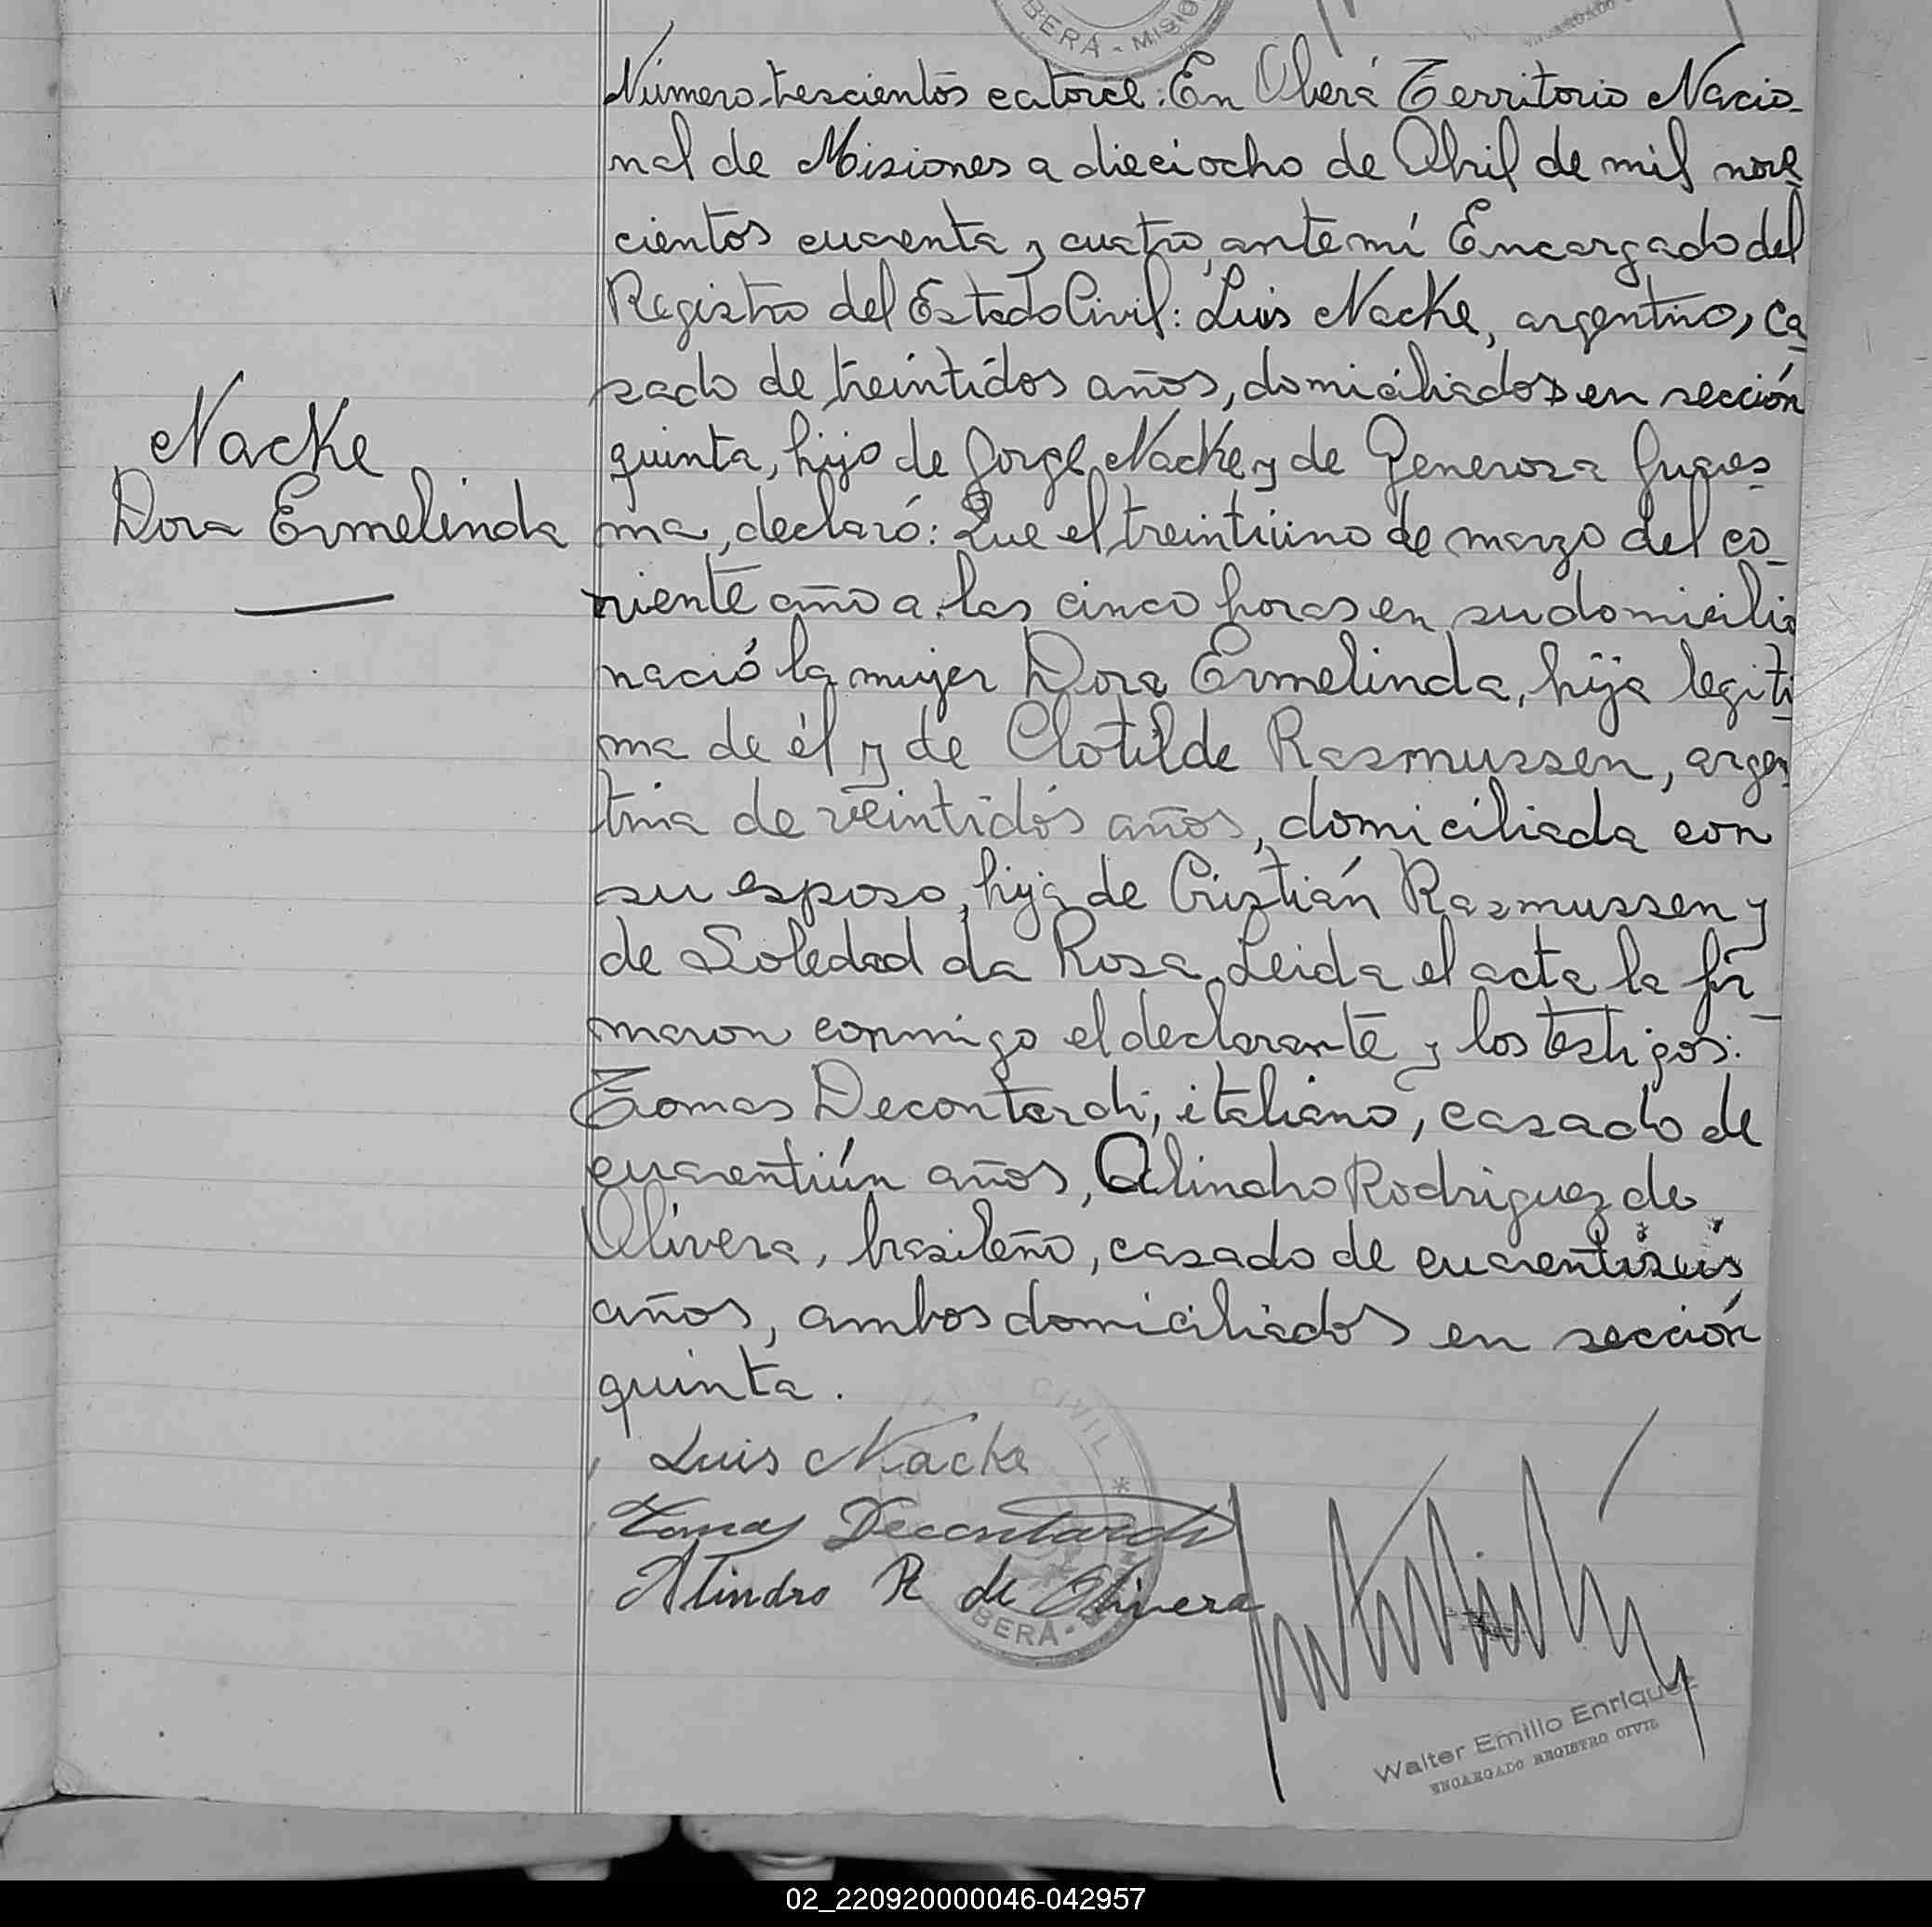 BERÁ - MISIO
Número trescientos catorce: En Oberá Territorio Nacio-
nal de Misiones a dieciocho de Abril de mil nove
cientos cuarenta y cuatro, ante mí Encargado del
Registro del Estado Civil: Luis Nacke, argentino, ca
sado de treintidos años, domiciliados en sección
Nacke
Dora Ermelinda
quinta, hijo de Jorge Nacke y de Generosa Guares
ma, declaró: Que el treintiuno de marzo del co
rriente año a las cinco horas en su domicilio
nació la mujer Dora Ermelinda, hija legiti
ma de él y de Clotilde Rasmussen, argen
tina de veintidós años, domiciliada con
su esposo, hija de Cristián Rasmussen y
de Soledad da Rosa. Leida el acta la fir
maron conmigo el declarante y los testigos:
Tomas Decontardi, italiano, casado de
cuarentiún años, Alindro Rodriguez de
Olivera, brasileño, casado de cuarentiseis
años, ambos domiciliados en sección
quinta.
CIVIL
Luis Nacke
Tomas Decontardi
Alindro R de Olivera
BERÁ -
Walter Emilio Enriquez
ENCARGADO REGISTRO CIVIL
02_220920000046-042957